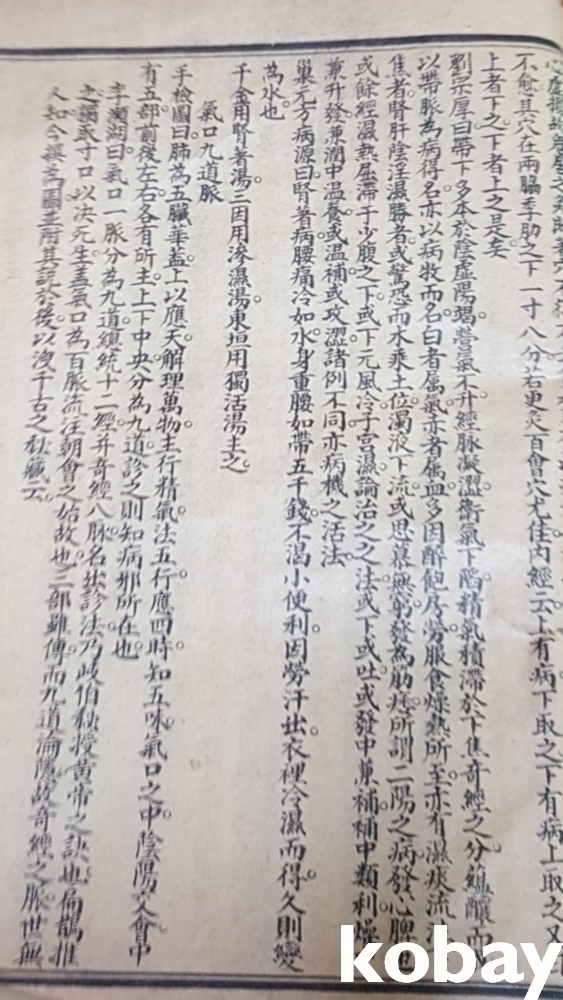 不愈其穴在兩脇季肋之下一寸八分若更灸百會穴尤佳內經云上有病下取之下有病上取之又
上者下之下者上之是矣
劉宗厚曰帶下多本於陰虛陽竭營氣不升經脉凝澁衛氣下陷精氣積滯於下焦奇經之分蘊釀而成
以帶脉為病得名亦以病狀而名白者属氣赤者属血多因醉飽房勞服食燥熱所至亦有濕痰流注
焦者腎肝陰淫濕勝者或驚恐而木乘土位濁液下流或思慕無窮發為筋痿所謂二陽之病發心脾
或餘經濕熱屈滯于少腹之下或下元風冷子宮濕論治之之法或下或吐或發中兼補補中類利燥
兼升發兼潤中温養或温補或攻澁諸例不同亦病機之活法
巢元方病源曰腎著病腰痛冷如水身重腰如帶五千錢不渴小便利因勞汗出衣裡冷濕而得久則變
為水也
千金用腎著湯三因用滲濕湯東垣用獨活湯主之
氣口九道脉
手檢圖曰肺為五臟華盖上以應天解理萬物主行精氣法五行應四時知五味氣口之中陰陽交會中
有五部前後左右各有所主上下中央分為九道診之則知病邪所在也
李瀕湖曰氣口一脉分為九道總統十二經并奇經八脉名出診法乃岐伯秘授黄帝之訣也扁鵲推
之獨取寸口以决死生盖氣口為百脉流注朝會之始故也三部雖傳而九道淪隱故奇經之脉世無
人知今撰為圖並附其說於後以洩千古之秘藏云
kobay